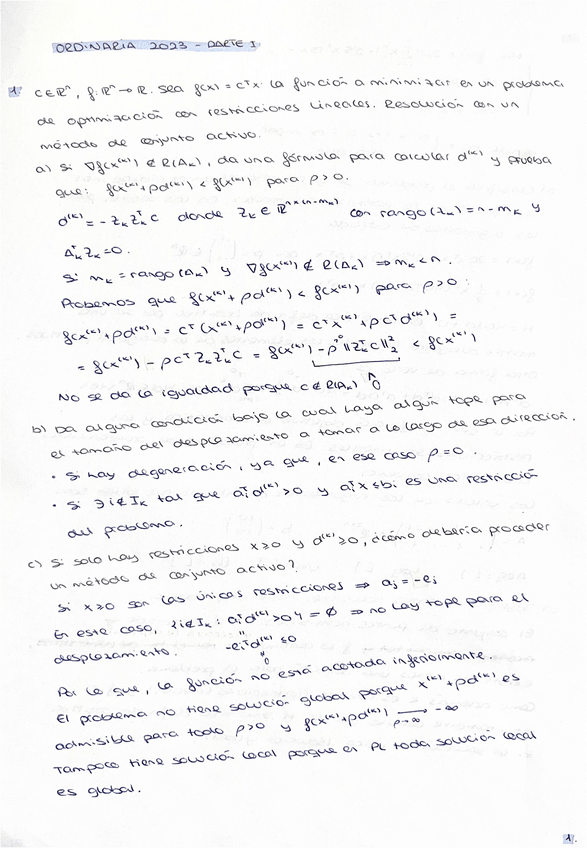 ORDINARIA 2023 - PARTE I
1. c∈ℝⁿ, f:ℝⁿ→ℝ. Sea f(x) = cᵀx la función a minimizar en un problema
de optimización con restricciones lineales. Resolución con un
método de conjunto activo.
a) Si ∇f(x⁽ᵏ⁾) ∉ R(Aₖ), da una fórmula para calcular d⁽ᵏ⁾ y prueba
que: f(x⁽ᵏ⁾+ρd⁽ᵏ⁾) < f(x⁽ᵏ⁾) para ρ>0.
d⁽ᵏ⁾ = -ZₖZₖᵀc donde Zₖ ∈ ℝⁿˣ⁽ⁿ⁻ᵐₖ⁾ con rango(Zₖ)=n-mₖ y
AₖᵀZₖ=0.
Si mₖ = rango(Aₖ) y ∇f(x⁽ᵏ⁾) ∉ R(Aₖ) ⇒ mₖ<n.
Probemos que f(x⁽ᵏ⁾+ρd⁽ᵏ⁾) < f(x⁽ᵏ⁾) para ρ>0:
f(x⁽ᵏ⁾+ρd⁽ᵏ⁾) = cᵀ(x⁽ᵏ⁾+ρd⁽ᵏ⁾) = cᵀx⁽ᵏ⁾+ρcᵀd⁽ᵏ⁾ =
= f(x⁽ᵏ⁾) - ρcᵀZₖZₖᵀc = f(x⁽ᵏ⁾) - ρ‖Zₖᵀc‖₂² < f(x⁽ᵏ⁾)
No se da la igualdad porque c∉R(Aₖ) ^ 0
b) Da alguna condición bajo la cual haya algún tope para
el tamaño del desplazamiento a tomar a lo largo de esa dirección.
• Si hay degeneración, ya que, en ese caso ρ=0.
• Si ∃i∉Iₖ tal que aᵢᵀd⁽ᵏ⁾>0 y aᵢᵀx≤bᵢ es una restricción
del problema.
c) Si solo hay restricciones x≥0 y d⁽ᵏ⁾≥0, ¿cómo debería proceder
un método de conjunto activo?
Si x≥0 son las únicas restricciones ⇒ aⱼ = -eⱼ
En este caso, {i∉Iₖ: aᵢᵀd⁽ᵏ⁾>0} = ∅ ⇒ no hay tope para el
desplazamiento. -eᵢᵀd⁽ᵏ⁾ ≤0
Por lo que, la función no está acotada inferiormente.
El problema no tiene solución global porque x⁽ᵏ⁾+ρd⁽ᵏ⁾ es
admisible para todo ρ>0 y f(x⁽ᵏ⁾+ρd⁽ᵏ⁾) → -∞ ρ→∞
Tampoco tiene solución local porque en PL toda solución local
es global.
1.